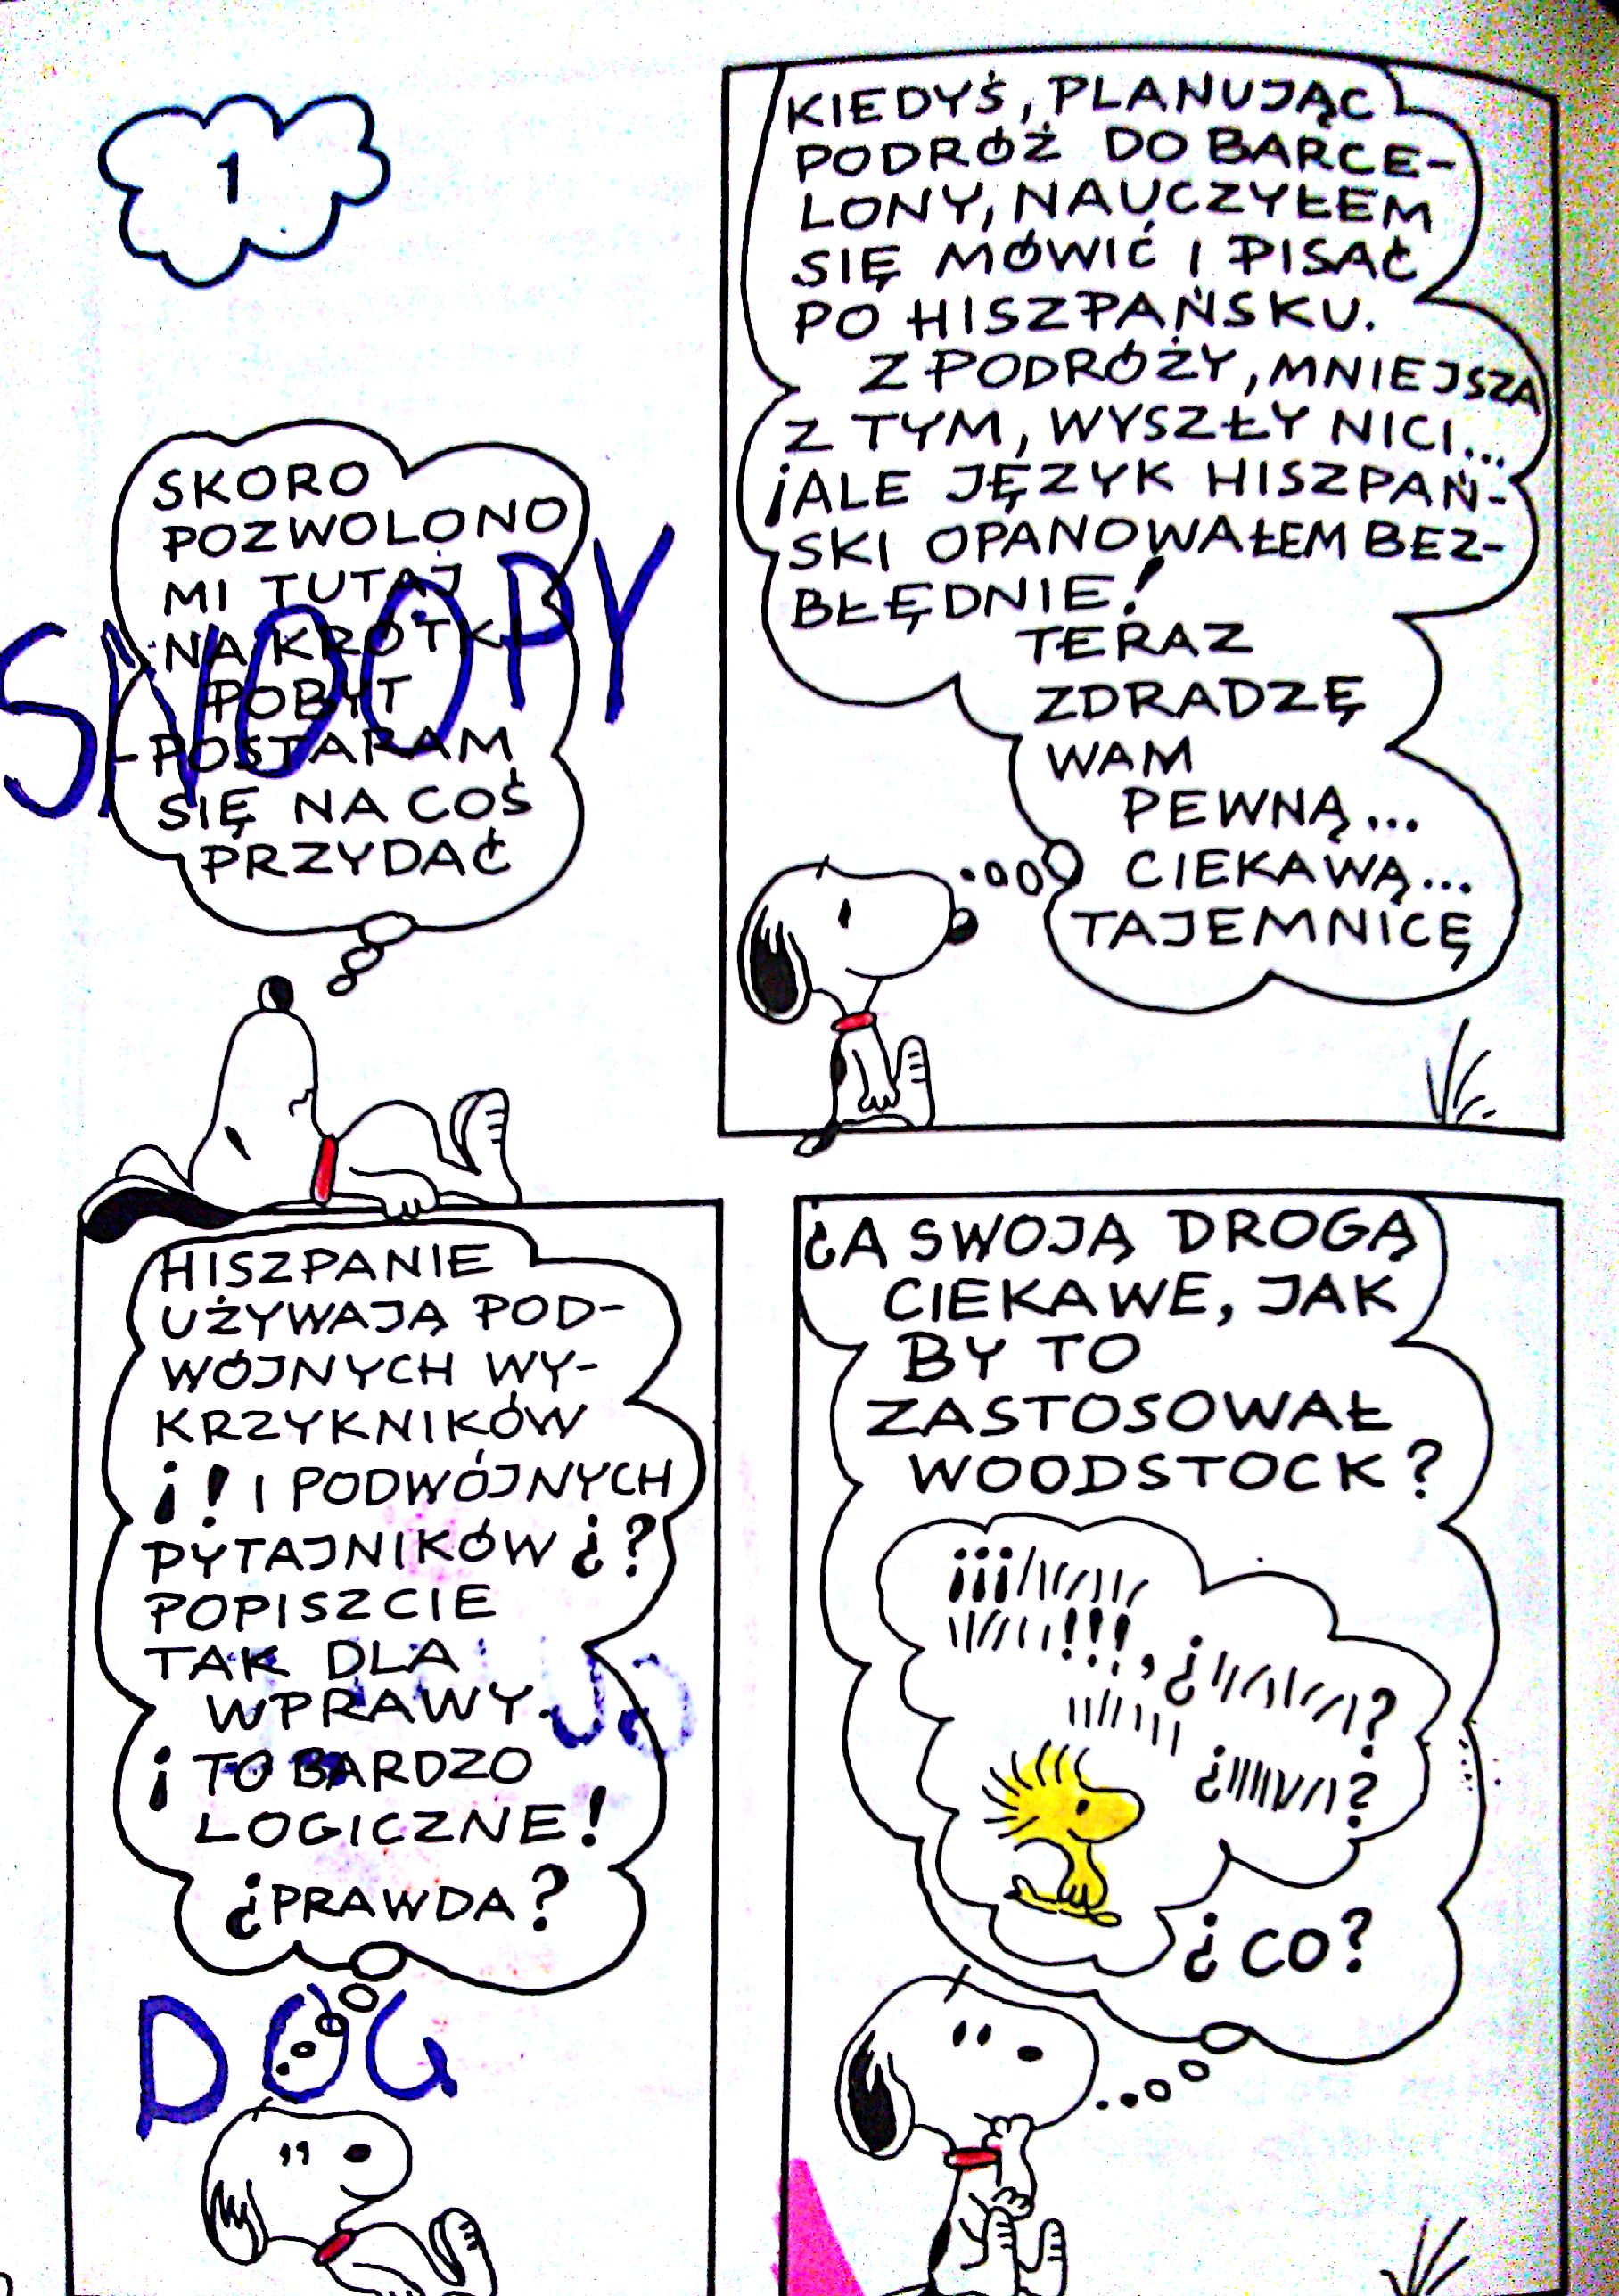 1
SKORO
POZWOLONO
MI TUTAJ
NA KRÓTKI
POBYT
-POSTARAM
SIĘ NA COŚ
PRZYDAĆ
SNOOPY
KIEDYŚ, PLANUJĄC
PODRÓŻ DO BARCE-
LONY, NAUCZYŁEM
SIĘ MÓWIĆ I PISAĆ
PO HISZPAŃSKU.
Z PODRÓŻY, MNIEJSZA
Z TYM, WYSZŁY NICI...
¡ALE JĘZYK HISZPAŃ-
SKI OPANOWAŁEM BEZ-
BŁĘDNIE!
TERAZ
ZDRADZĘ
WAM
PEWNĄ...
CIEKAWĄ...
TAJEMNICĘ
HISZPANIE
UŻYWAJĄ POD-
WÓJNYCH WY-
KRZYKNIKÓW
¡! I PODWÓJNYCH
PYTAJNIKÓW ¿?
POPISZCIE
TAK DLA
WPRAWY.
¡TO BARDZO
LOGICZNE!
¿PRAWDA?
DOG
¿A SWOJĄ DROGĄ
CIEKAWE, JAK
BY TO
ZASTOSOWAŁ
WOODSTOCK?
¿CO?